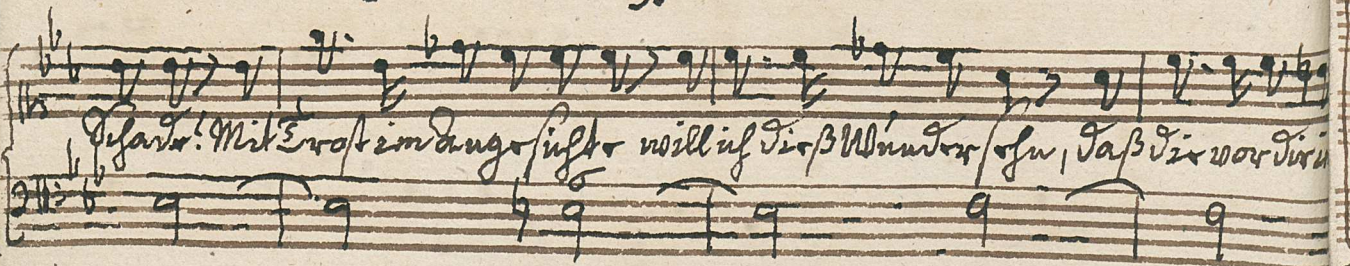 Schade! Mit Trost im Angesichte will ich dieß Wunder sehn, daß die vor dir
6